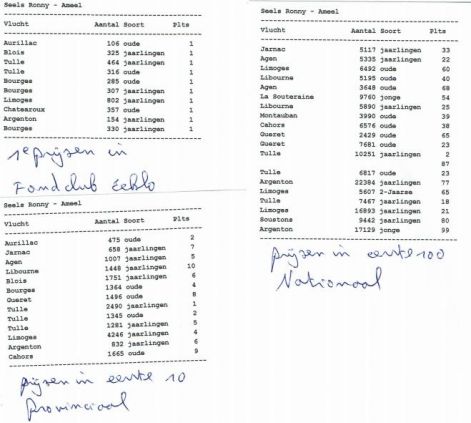 Seels Ronny - Ameel
Vlucht Aantal Soort Plts
Aurillac 106 oude 1
Blois 325 jaarlingen 1
Tulle 464 jaarlingen 1
Tulle 316 oude 1
Bourges 285 oude 1
Bourges 307 jaarlingen 1
Limoges 802 jaarlingen 1
Chatearoux 357 oude 1
Argenton 154 jaarlingen 1
Bourges 330 jaarlingen 1
1e prijzen in
Fondclub Eeklo
Seels Ronny - Ameel
Vlucht Aantal Soort Plts
Aurillac 475 oude 2
Jarnac 658 jaarlingen 7
Agen 1007 jaarlingen 5
Libourne 1448 jaarlingen 10
Blois 1751 jaarlingen 6
Bourges 1364 oude 4
Gueret 1496 oude 8
Tulle 2490 jaarlingen 1
Tulle 1345 oude 2
Tulle 1281 jaarlingen 5
Limoges 4246 jaarlingen 4
Argenton 832 jaarlingen 6
Cahors 1665 oude 9
prijzen in eerste 10
Provinciaal
Seels Ronny - Ameel
Vlucht Aantal Soort Plts
Jarnac 5117 jaarlingen 33
Agen 5335 jaarlingen 22
Limoges 6492 oude 60
Libourne 5195 oude 40
Agen 3648 oude 68
La Souteraine 9760 jonge 54
Libourne 5890 jaarlingen 25
Montauban 3990 oude 39
Cahors 6576 oude 38
Gueret 2429 oude 65
Gueret 7681 oude 23
Tulle 10251 jaarlingen 2
87
Tulle 6817 oude 23
Argenton 22384 jaarlingen 77
Limoges 5607 2-Jaarse 65
Tulle 7467 jaarlingen 18
Limoges 16893 jaarlingen 21
Soustons 9442 jaarlingen 80
Argenton 17129 jonge 99
prijzen in eerste 100
Nationaal